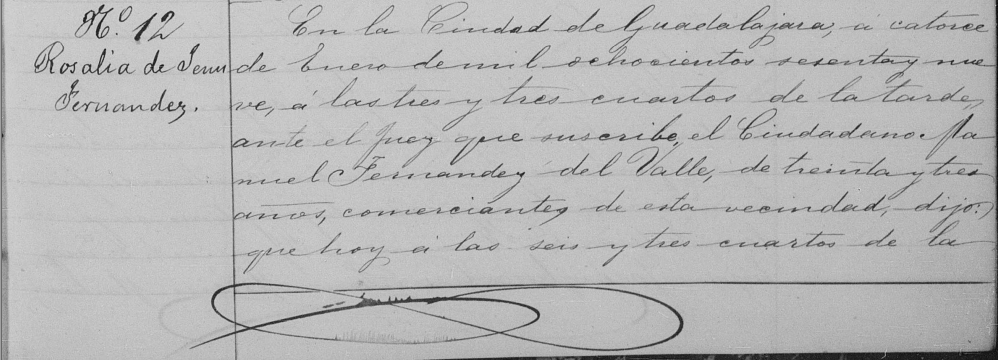 N.º 12
Rosalia de Jesus
Fernandez.
En la Ciudad de Guadalajara, á catorce
de Enero de mil ochocientos sesenta y nue
ve, á las tres y tres cuartos de la tarde,
ante el Juez que suscribe, el Ciudadano Ma
nuel Fernandez del Valle, de treinta y tres
años, comerciante, de esta vecindad, dijo:
que hoy á las seis y tres cuartos de la